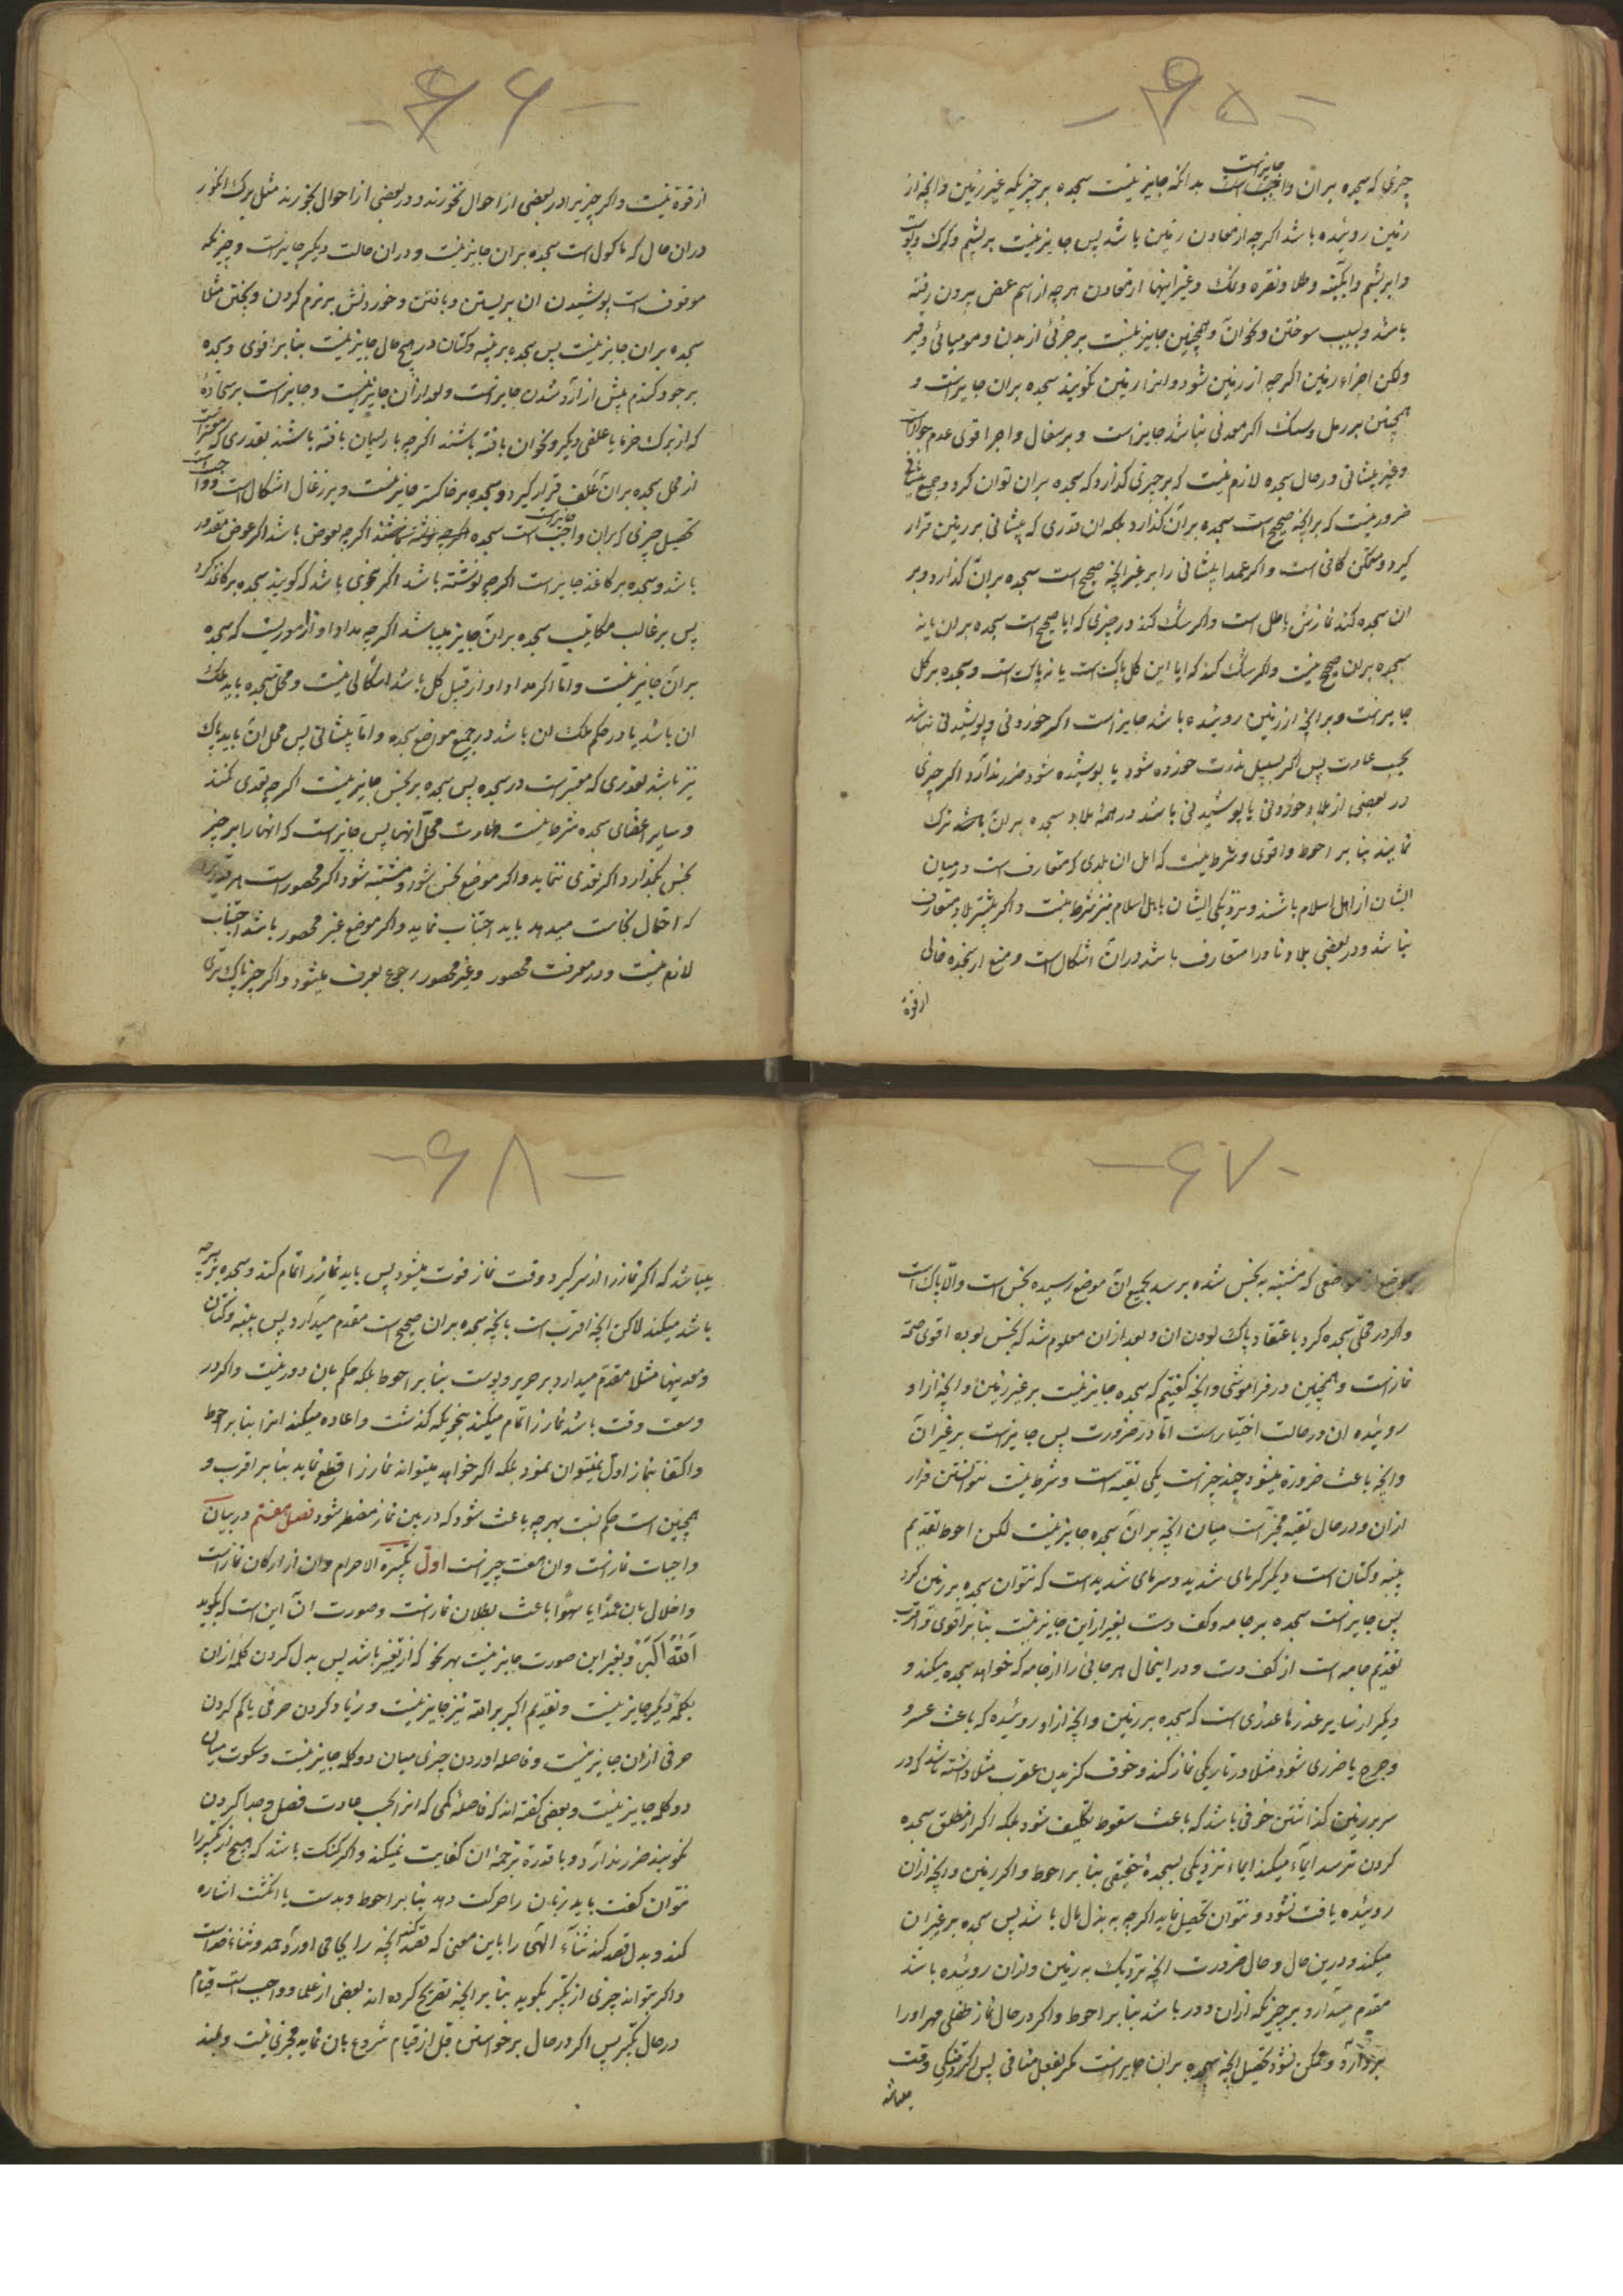 -۶۵-
چیزی که سجده بران واجب است جایزاست بدانکه جایز نیست سجده بر چیزیکه غیر زمین و انچه از
زمین روئیده باشد اکرچه از معادن زمین باشد پس جایز نیست بر پشم و کرک و پوست
و ابریشم و ابکینه و طلا و نقره و نمک و غیر اینها از معادن هرچه از اسم ارض بیرون رفته
باشد بسبب سوختن و نحو ان و همچنین جایز نیست بر جزئی از بدن و مومیائی و قیر
ولکن اجزاء زمین اکرچه از زمین شود و انرا زمین نکویند سجده بران جایزاست و
همچنین بر رمل و سنک اکر معدنی نباشد جایز است و بر سفال و اجر اقوی عدم جوازاست
و غیر پیشانی در حال سجده لازم نیست که بر چیزی کذارد که سجده بران توان کرد و جمیع پیشانی
ضرور نیست که بر انچه صحیح است سجده بران کذارد بلکه ان قدری که پیشانی بر زمین قرار
کیرد و ممکن کافی است و اکر عمدا پیشانی را بر غیر انچه صحیح است سجده بران کذارد و بر
ان سجده کند نمازش باطل است و اکر شک کند در چیزی که ایا صحیح است سجده بران یا نه
سجده بران صحیح نیست و اکر شک کند که ایا این کل پاک است یا نه پاک است و سجده بر کل
جایزاست و بر انچه از زمین روئیده باشد جایز است اکر خوردنی و پوشیدنی نباشد
بحسب عادت پس اکر بسبیل ندرت خورده شود یا پوشیده شود ضرر ندارد اکر چیزی
در بعضی از بلاد خوردنی یا پوشیدنی باشد در همهٔ بلاد سجده بران باشد ترک
نمایند بنا بر احوط و اقوی و شرط نیست که اهل ان بلدی که متعارف است درمیان
ایشان از اهل اسلام باشند و نزدیکی ایشان باهل اسلام نیز شرط نیست و اکر بیشتر بلاد متعارف
نباشد و در بعضی بلاد نادرا متعارف باشد دران اشکال است و منع از سجده خالی
از قوة
-۶۶-
از قوة نیست و اکر چیزیرا در بعضی از احوال نخورند و در بعضی از احوال بخورند مثل برک انکور
دران حال که ماکول است سجده بران جایز نیست و دران حالت دیکر جایزاست و چیزیکه
موقوف است پوشیدن ان بریستن و بافتن و خوردنش بر نرم کردن و پختن مثلا
سجده بران جایز نیست پس سجده بر پنبه و کتان در هیچ حال جایز نیست بنا بر اقوی و سجده
بر جو و کندم پیش از آرد شدن جایزاست و بعد ازان جایز نیست و جایزاست بر سجادهٔ
که از برک خرما یا علفی دیکر و نحو ان بافته باشند اکرچه با ریسمان بافته باشند بقدری که معتبراست
از محل سجده بران علف قرار کیرد و سجده بر خاکستر جایز نیست و بر زغال اشکال است و واجب است
تحصیل چیزی که بران واجب است جایزاست سجده اکرچه بعوض باشد اکر عوض مقدور
باشد و سجده بر کاغذ جایزاست اکرچه نوشته باشد اکر بنحوی باشد که کویند سجده بر کاغذ کرد
پس بر غالب مکاتیب سجده بران جایز میباشد اکرچه مداد او از اموریست که سجده
بران جایز نیست و اما اکر مداد او از قبیل کل باشد اشکالی نیست و محل سجده باید ملک
ان باشد یا در حکم ملک ان باشد در جمیع مواضع سجده و اما پیشانی پس محل ان باید پاک
نیز باشد بقدری که معتبراست در سجده پس سجده بر نجس جایز نیست اکرچه تعدی نکند
و سایر اعضای سجده شرط نیست طهارت محل انها پس جایزاست که انها را بر چیز
نجس بکذارد اکر تعدی ننماید و اکر موضع نجس شود و مشتبه شود اکر محصوراست هر قدری
که احتمال نجاست میدهد باید اجتناب نماید و اکر موضع غیر محصور باشد اجتناب
لازم نیست و در معرفت محصور و غیر محصور رجوع بعرف میشود و اکر چیز پاک تری
-۶۷-
بموضع از مواضعی که مشتبه به نجس شده برسد بجمیع ان موضع رسیده نجس است والّا پاک است
و اکر در محلی سجده کرد باعتقاد پاک بودن ان و بعد ازان معلوم شد که نجس بوده اقوی صحّة
نمازاست و همچنین در فراموشی و انچه کفتیم که سجده جایز نیست بر غیر زمین و انچه ازاو
روئیده ان در حالت اختیاراست اما در ضرورت پس جایزاست بر غیر ان
و انچه باعث ضرورة میشود چند چیزاست یکی تقیه است و شرط نیست نتوانستن فرار
ازان و در حال تقیه مخیّراست میان انچه بران سجده جایز نیست لکن احوط تقدیم
پنبه و کتان است دیکر کرمای شدید و سرمای شدید است که نتوان سجده بر زمین کرد
پس جایزاست سجده بر جامه و کف دست بغیر ازین جایز نیست بنا بر اقوی و اقرب
تقدیم جامه است از کف دست و در اینحال هر جائی را از جامه که خواهد سجده میکند و
دیکر از سایر عذرها عذری است که سجده بر زمین و انچه ازاو روئیده که باعث عسر و
و حرج یا ضرری شود مثلا در تاریکی نماز کند و خوف کزیدن عقرب مثلا داشته باشد که در
سر بر زمین کذاشتن خوفی باشد که باعث سقوط تکلیف شود بلکه اکر از مطلق سجده
کردن ترسد ایماء میکند ایماء نزدیکی بسجدهٔ حقیقی بنا بر احوط و اکر زمین و انچه ازان
روئیده یافت نشود و نتوان تحصیل نماید اکرچه به بذل مال باشد پس سجده بر غیر ان
میکند و درین حال و حال ضرورت انچه نزدیک به زمین و ازان روئیده باشد
مقدم میدارد بر چیزیکه ازان دور باشد بنا بر احوط و اکر در حال نماز طفلی مهر اورا
بردارد و ممکن نشود تحصیل انچه سجده بران جایزاست مکر بفعل منافی پس اکر تنکی وقت
-۶۸-
میباشد که اکر نماز را از سر کیرد وقت نماز فوت میشود پس باید نماز را تمام کند و سجده بر هرچه
باشد میکند لاکن انچه اقرب است بانچه سجده بران صحیح است مقدم میدارد پس پنبه و کتان
و معدنیها مثلا مقدم میدارد بر حریر و پوست بنا بر احوط بلکه حکم بان دور نیست و اکر در
وسعت وقت باشد نماز را تمام میکند بنحویکه کذشت و اعاده میکند انرا بنا بر احوط
و اکتفا بنماز اول نمیتوان نمود بلکه اکر خواهد میتواند نماز را قطع نماید بنا بر اقرب و
همچنین است حکم نسبت بهرچه باعث شود که در بین نماز مضطر شود فصل هفتم در بیان
واجبات نمازاست وان هفت چیزاست اول تکبیرة الاحرام وان از ارکان نمازاست
و اخلال بان عمدًا یا سهوًا باعث بطلان نمازاست و صورت ان این است که بکوید
اَللّٰهُ اَکْبَرْ و بغیر این صورت جایز نیست بهر نحو که از تغییر باشد پس بدل کردن کلمهٔ ازان
بکلمهٔ دیکر جایز نیست و تقدیم اکبر بر الله نیز جایز نیست و زیاد کردن حرفی یا کم کردن
حرفی ازان جایز نیست و فاصله اوردن چیزی میان دو کلمه جایز نیست و سکوت میان
دو کلمه جایز نیست و بعضی کفته اند که فاصلهٔ کمی که انرا بحسب عادت فصل و جدا کردن
نکویند ضرر ندارد و با قدرة ترجمهٔ ان کفایت نمیکند و اکر کنک باشد که هیچ از تکبیر را
نتوان کفت باید زبان را حرکت دهد بنا بر احوط و بدست یا انکشت اشاره
کند و بدل قصد کند ثناء الهی را باین معنی که قصد کند انچه را بجا می اورد حمد و ثناء خداست
و اکر بتواند چیزی از تکبیر بکوید بنا بر انچه تصریح کرده اند بعضی از علما و واجب است قیام
در حال تکبیر پس اکر در حال برخواستن قبل از قیام شروع بان نماید مجزی نیست و بلند